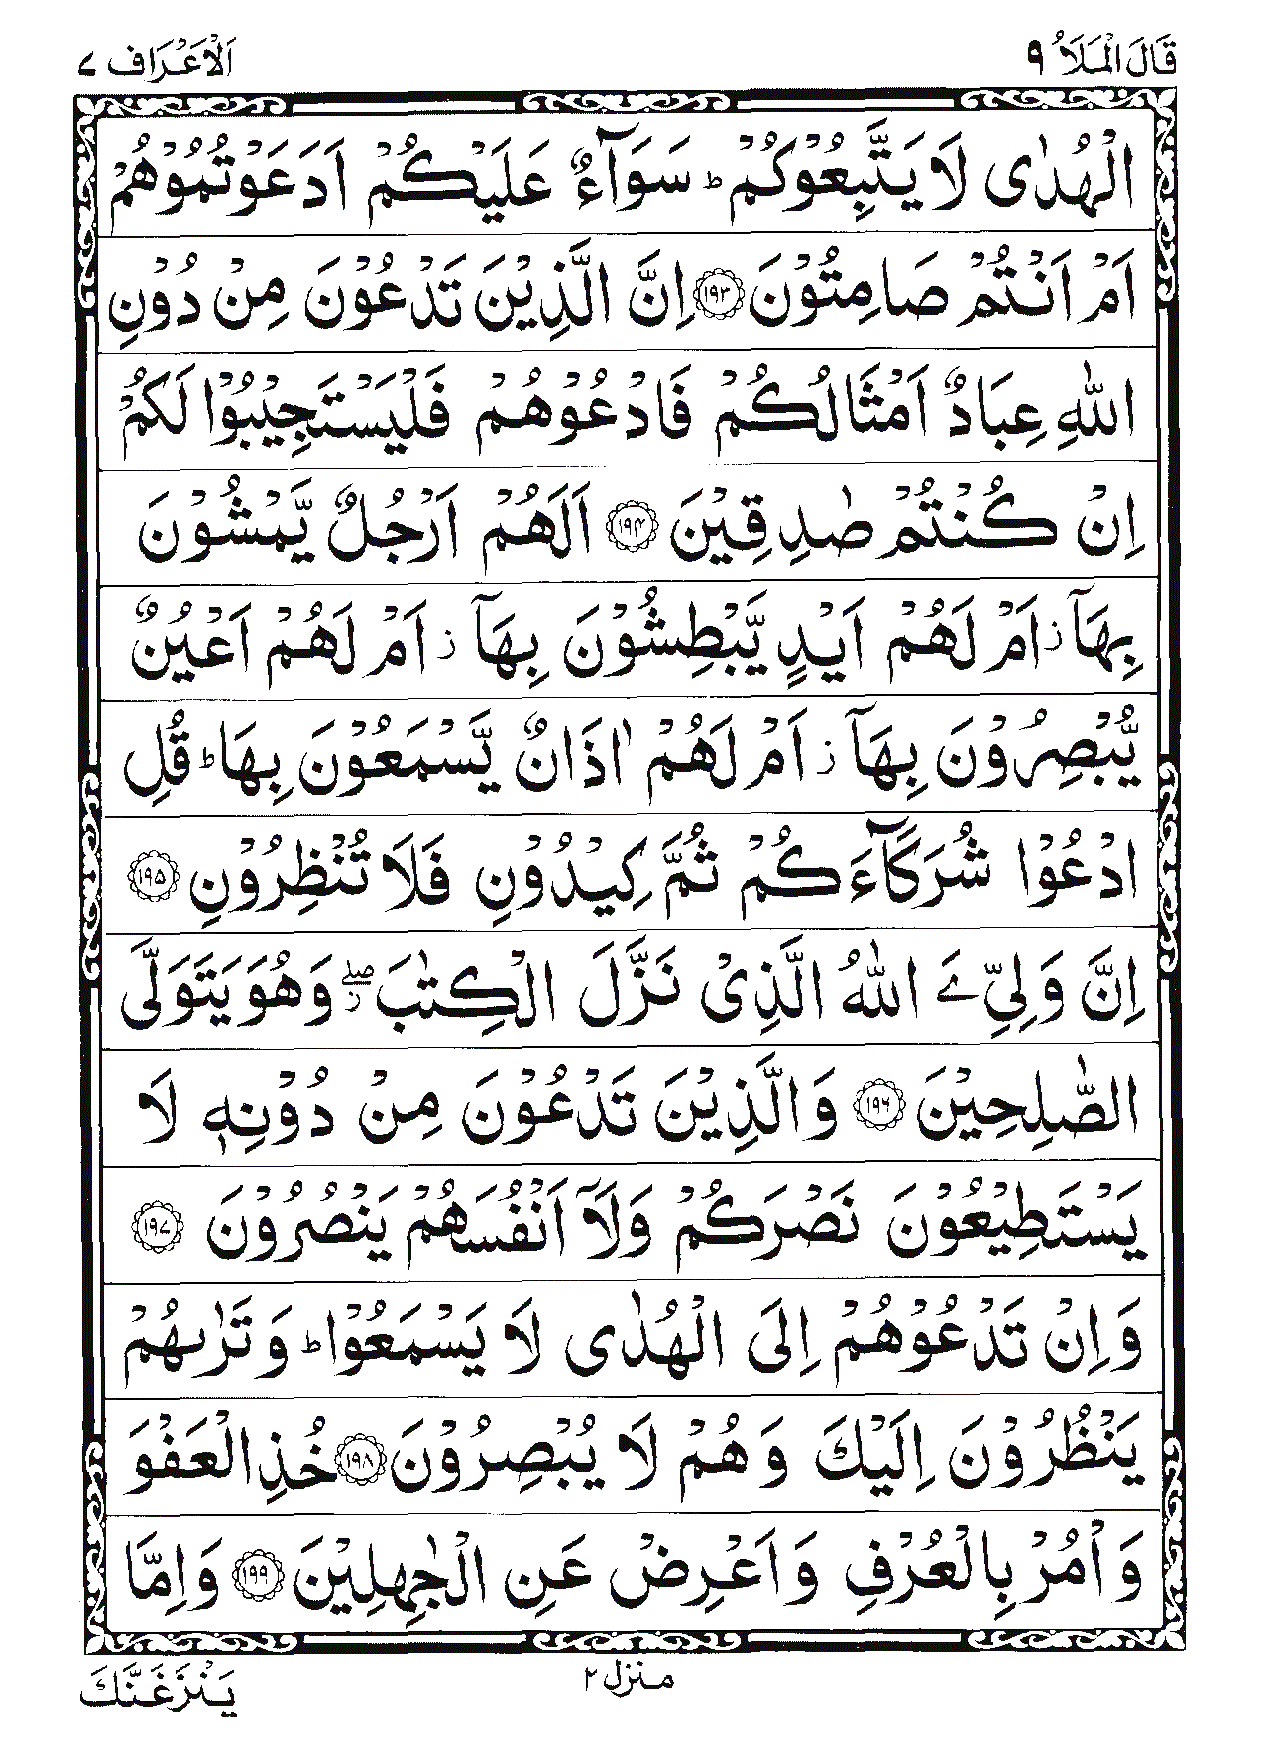 قَالَ الْمَلَاُ ٩
اَلْاَعْرَاف ٧
الْهُدٰى لَا يَتَّبِعُوْكُمْ ؕ سَوَآءٌ عَلَيْكُمْ اَدَعَوْتُمُوْهُمْ
اَمْ اَنْتُمْ صَامِتُوْنَ ﴿۱۹۳﴾ اِنَّ الَّذِيْنَ تَدْعُوْنَ مِنْ دُوْنِ
اللّٰهِ عِبَادٌ اَمْثَالُكُمْ فَادْعُوْهُمْ فَلْيَسْتَجِيْبُوْا لَكُمْ
اِنْ كُنْتُمْ صٰدِقِيْنَ ﴿۱۹۴﴾ اَلَهُمْ اَرْجُلٌ يَّمْشُوْنَ
بِهَآ ؗ اَمْ لَهُمْ اَيْدٍ يَّبْطِشُوْنَ بِهَآ ؗ اَمْ لَهُمْ اَعْيُنٌ
يُّبْصِرُوْنَ بِهَآ ؗ اَمْ لَهُمْ اٰذَانٌ يَّسْمَعُوْنَ بِهَا ؕ قُلِ
ادْعُوْا شُرَكَآءَكُمْ ثُمَّ كِيْدُوْنِ فَلَا تُنْظِرُوْنِ ﴿۱۹۵﴾
اِنَّ وَلِيِّ ےَ اللّٰهُ الَّذِىْ نَزَّلَ الْكِتٰبَ ۖؗ وَهُوَ يَتَوَلَّى
الصّٰلِحِيْنَ ﴿۱۹۶﴾ وَالَّذِيْنَ تَدْعُوْنَ مِنْ دُوْنِهٖ لَا
يَسْتَطِيْعُوْنَ نَصْرَكُمْ وَلَآ اَنْفُسَهُمْ يَنْصُرُوْنَ ﴿۱۹۷﴾
وَاِنْ تَدْعُوْهُمْ اِلَى الْهُدٰى لَا يَسْمَعُوْا ؕ وَتَرٰىهُمْ
يَنْظُرُوْنَ اِلَيْكَ وَهُمْ لَا يُبْصِرُوْنَ ﴿۱۹۸﴾ خُذِ الْعَفْوَ
وَاْمُرْ بِالْعُرْفِ وَاَعْرِضْ عَنِ الْجٰهِلِيْنَ ﴿۱۹۹﴾ وَاِمَّا
منزل ٢
يَنْزَغَنَّكَ